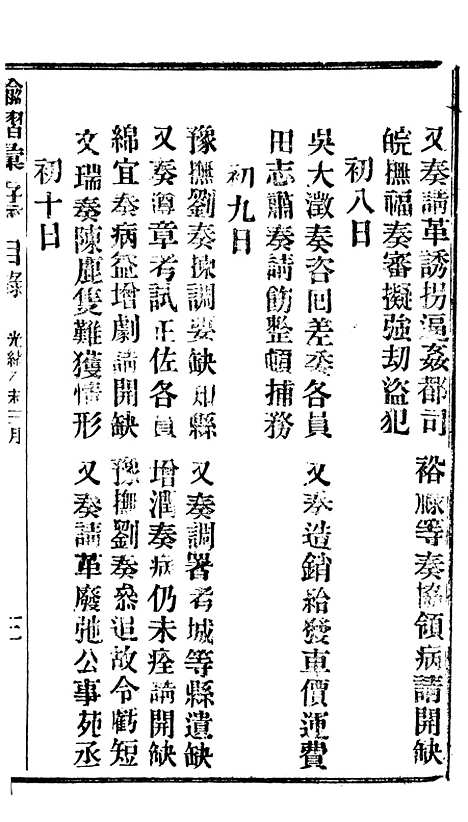 又奏請革誘拐逼姦都司　裕祿等奏協領病請開缺
皖撫福奏審擬強刧盜犯
初八日
吳大澂奏咨回差委各員　又奏造銷給發車價運費
田志肅奏請飭整頓捕務
初九日
豫撫劉奏揀調要缺知縣　又奏調署考城等縣遺缺
又奏遵章考試正佐各員　增潤奏病仍未痊請開缺
綿宜奏病益增劇請開缺　豫撫劉奏叅追故令虧短
文瑞奏陳鹿隻難獲情形　又奏請革廢弛公事苑丞
初十日
諭摺彙存 目錄 光緒 未 月